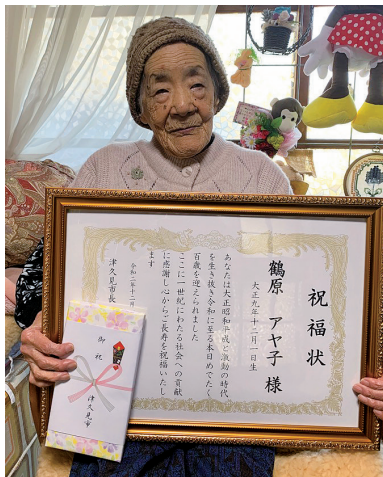 祝福状
鶴原 アヤ子 様
大正九年十二月二日生
あなたは大正昭和平成と激動の時代
を生き抜き令和に至る本日めでたく
百歳を迎えられました
ここに一世紀にわたる社会への貢献
に感謝し心からご長寿を祝福いたし
ます
令和二年十二月
津久見市長
御祝
津久見市